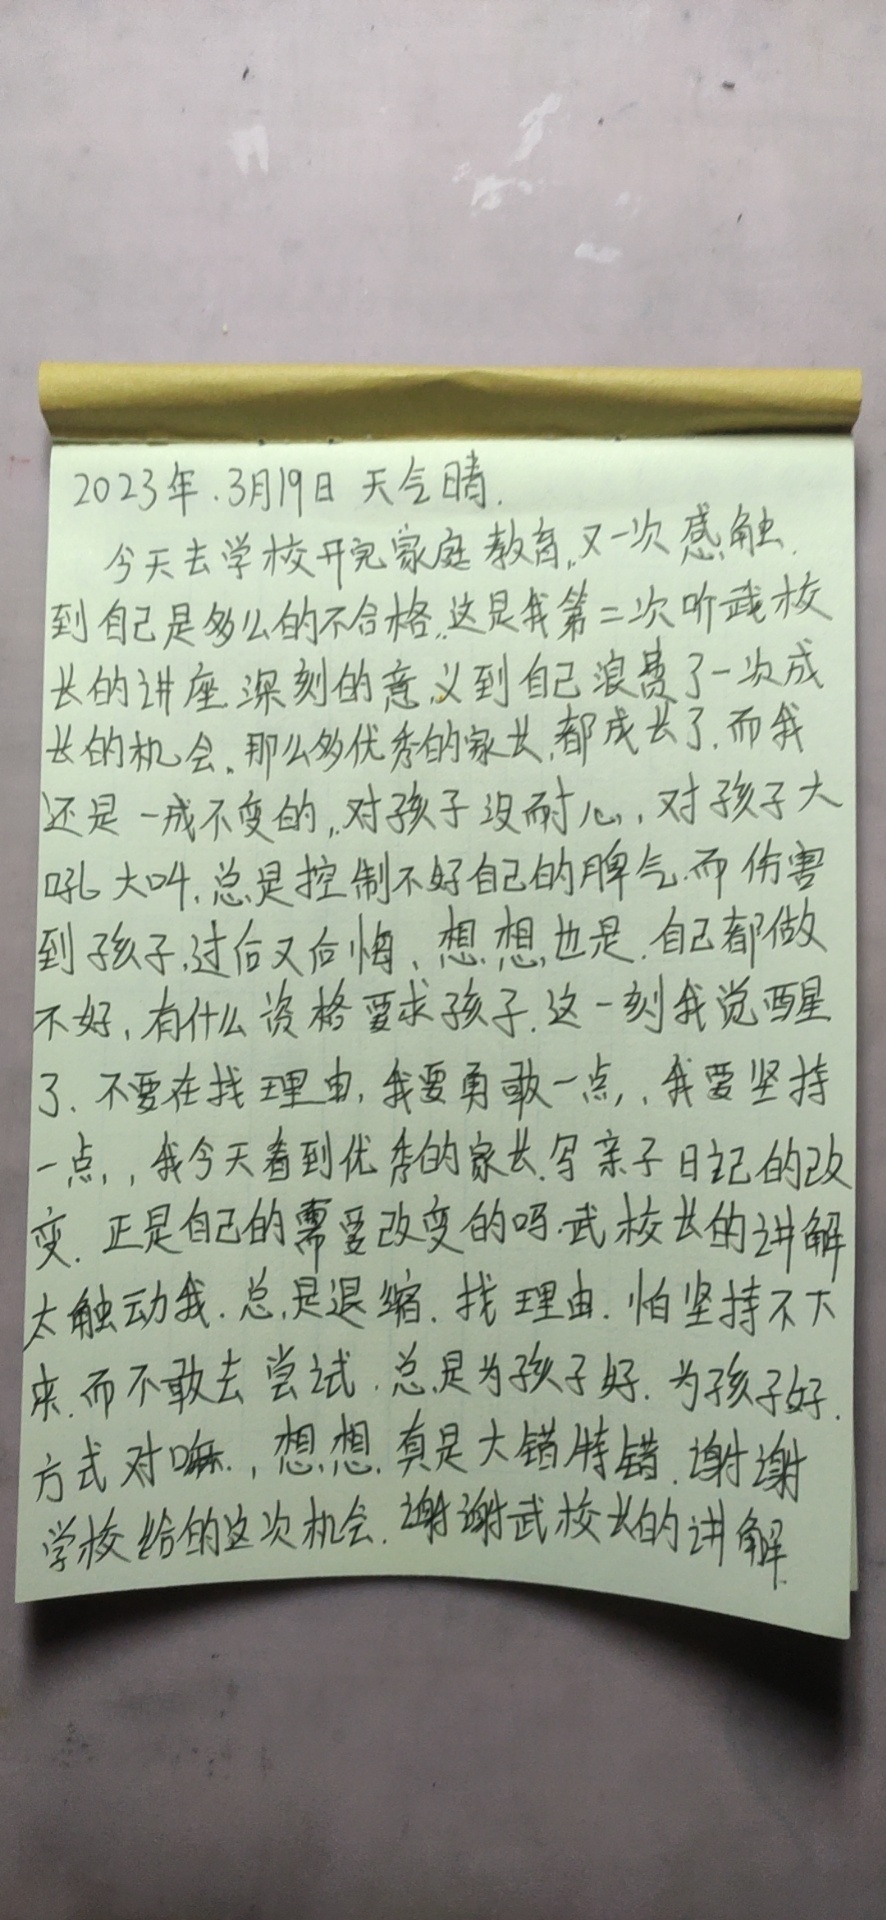 2023年.3月19日 天气晴.
今天去学校开完家庭教育,又一次感触.
到自己是多么的不合格,这是我第二次听武校
长的讲座.深刻的意义到自己浪费了一次成
长的机会.那么多优秀的家长,都成长了.而我
还是一成不变的,对孩子没耐心,对孩子大
吼大叫,总是控制不好自己的脾气.而伤害
到孩子,过后又后悔,想想也是.自己都做
不好,有什么资格要求孩子.这一刻我觉醒
了.不要在找理由,我要勇敢一点,,我要坚持
一点,,我今天看到优秀的家长.写亲子日记的改
变.正是自己的需要改变的吗.武校长的讲解
太触动我.总是退缩.找理由.怕坚持不下
来.而不敢去尝试.总是为孩子好.为孩子好.
方式对嘛.,想想,真是大错特错.谢谢
学校给的这次机会.谢谢武校长的讲解.